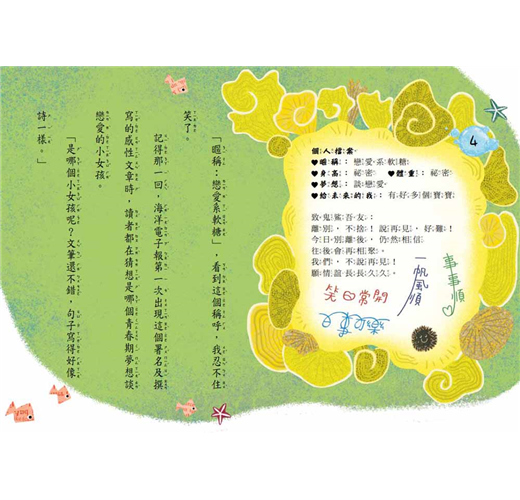 4
個人檔案
♥暱稱：戀愛系軟糖
♥身高：祕密 ♥體重：祕密
♥夢想：談戀愛
♥給未來的我：有好多個寶寶
致鬼鯊吾友：
離別，不捨！說再見，好難！
今日別離後，仍然相信
往後會再相聚。
我們，不說再見！
願情誼長長久久。
事事順♡
一帆風順
笑口常開
百事可樂
「暱稱：戀愛系軟糖」，看到這個稱呼，我忍不住
笑了。
記得那一回，海洋電子報第一次出現這個署名及撰
寫的感性文章時，讀者都在猜想是哪個青春期夢想談
戀愛的小女孩。
「是哪個小女孩呢？文筆還不錯，句子寫得好像
詩一樣。」